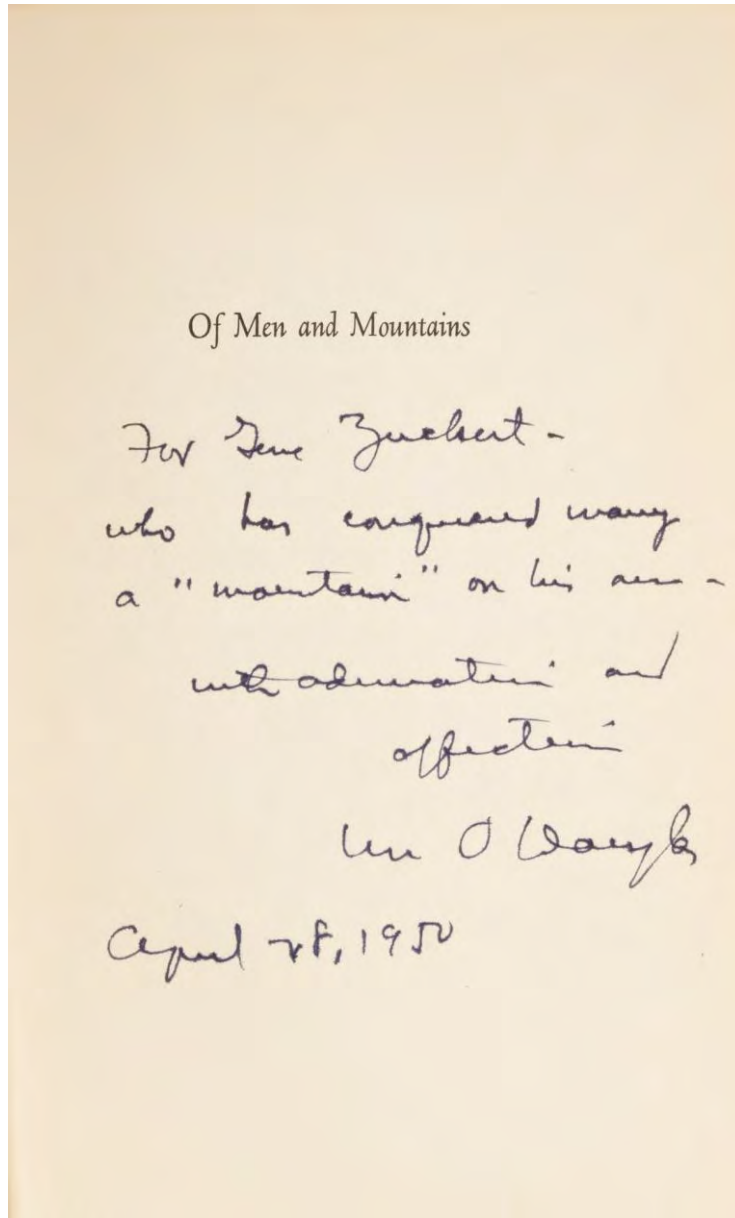 Of Men and Mountains
For Gene Zuckert -
who has conquered many
a "mountain" on his own -
with admiration and
affection
Wm O Douglas
April 28, 1950